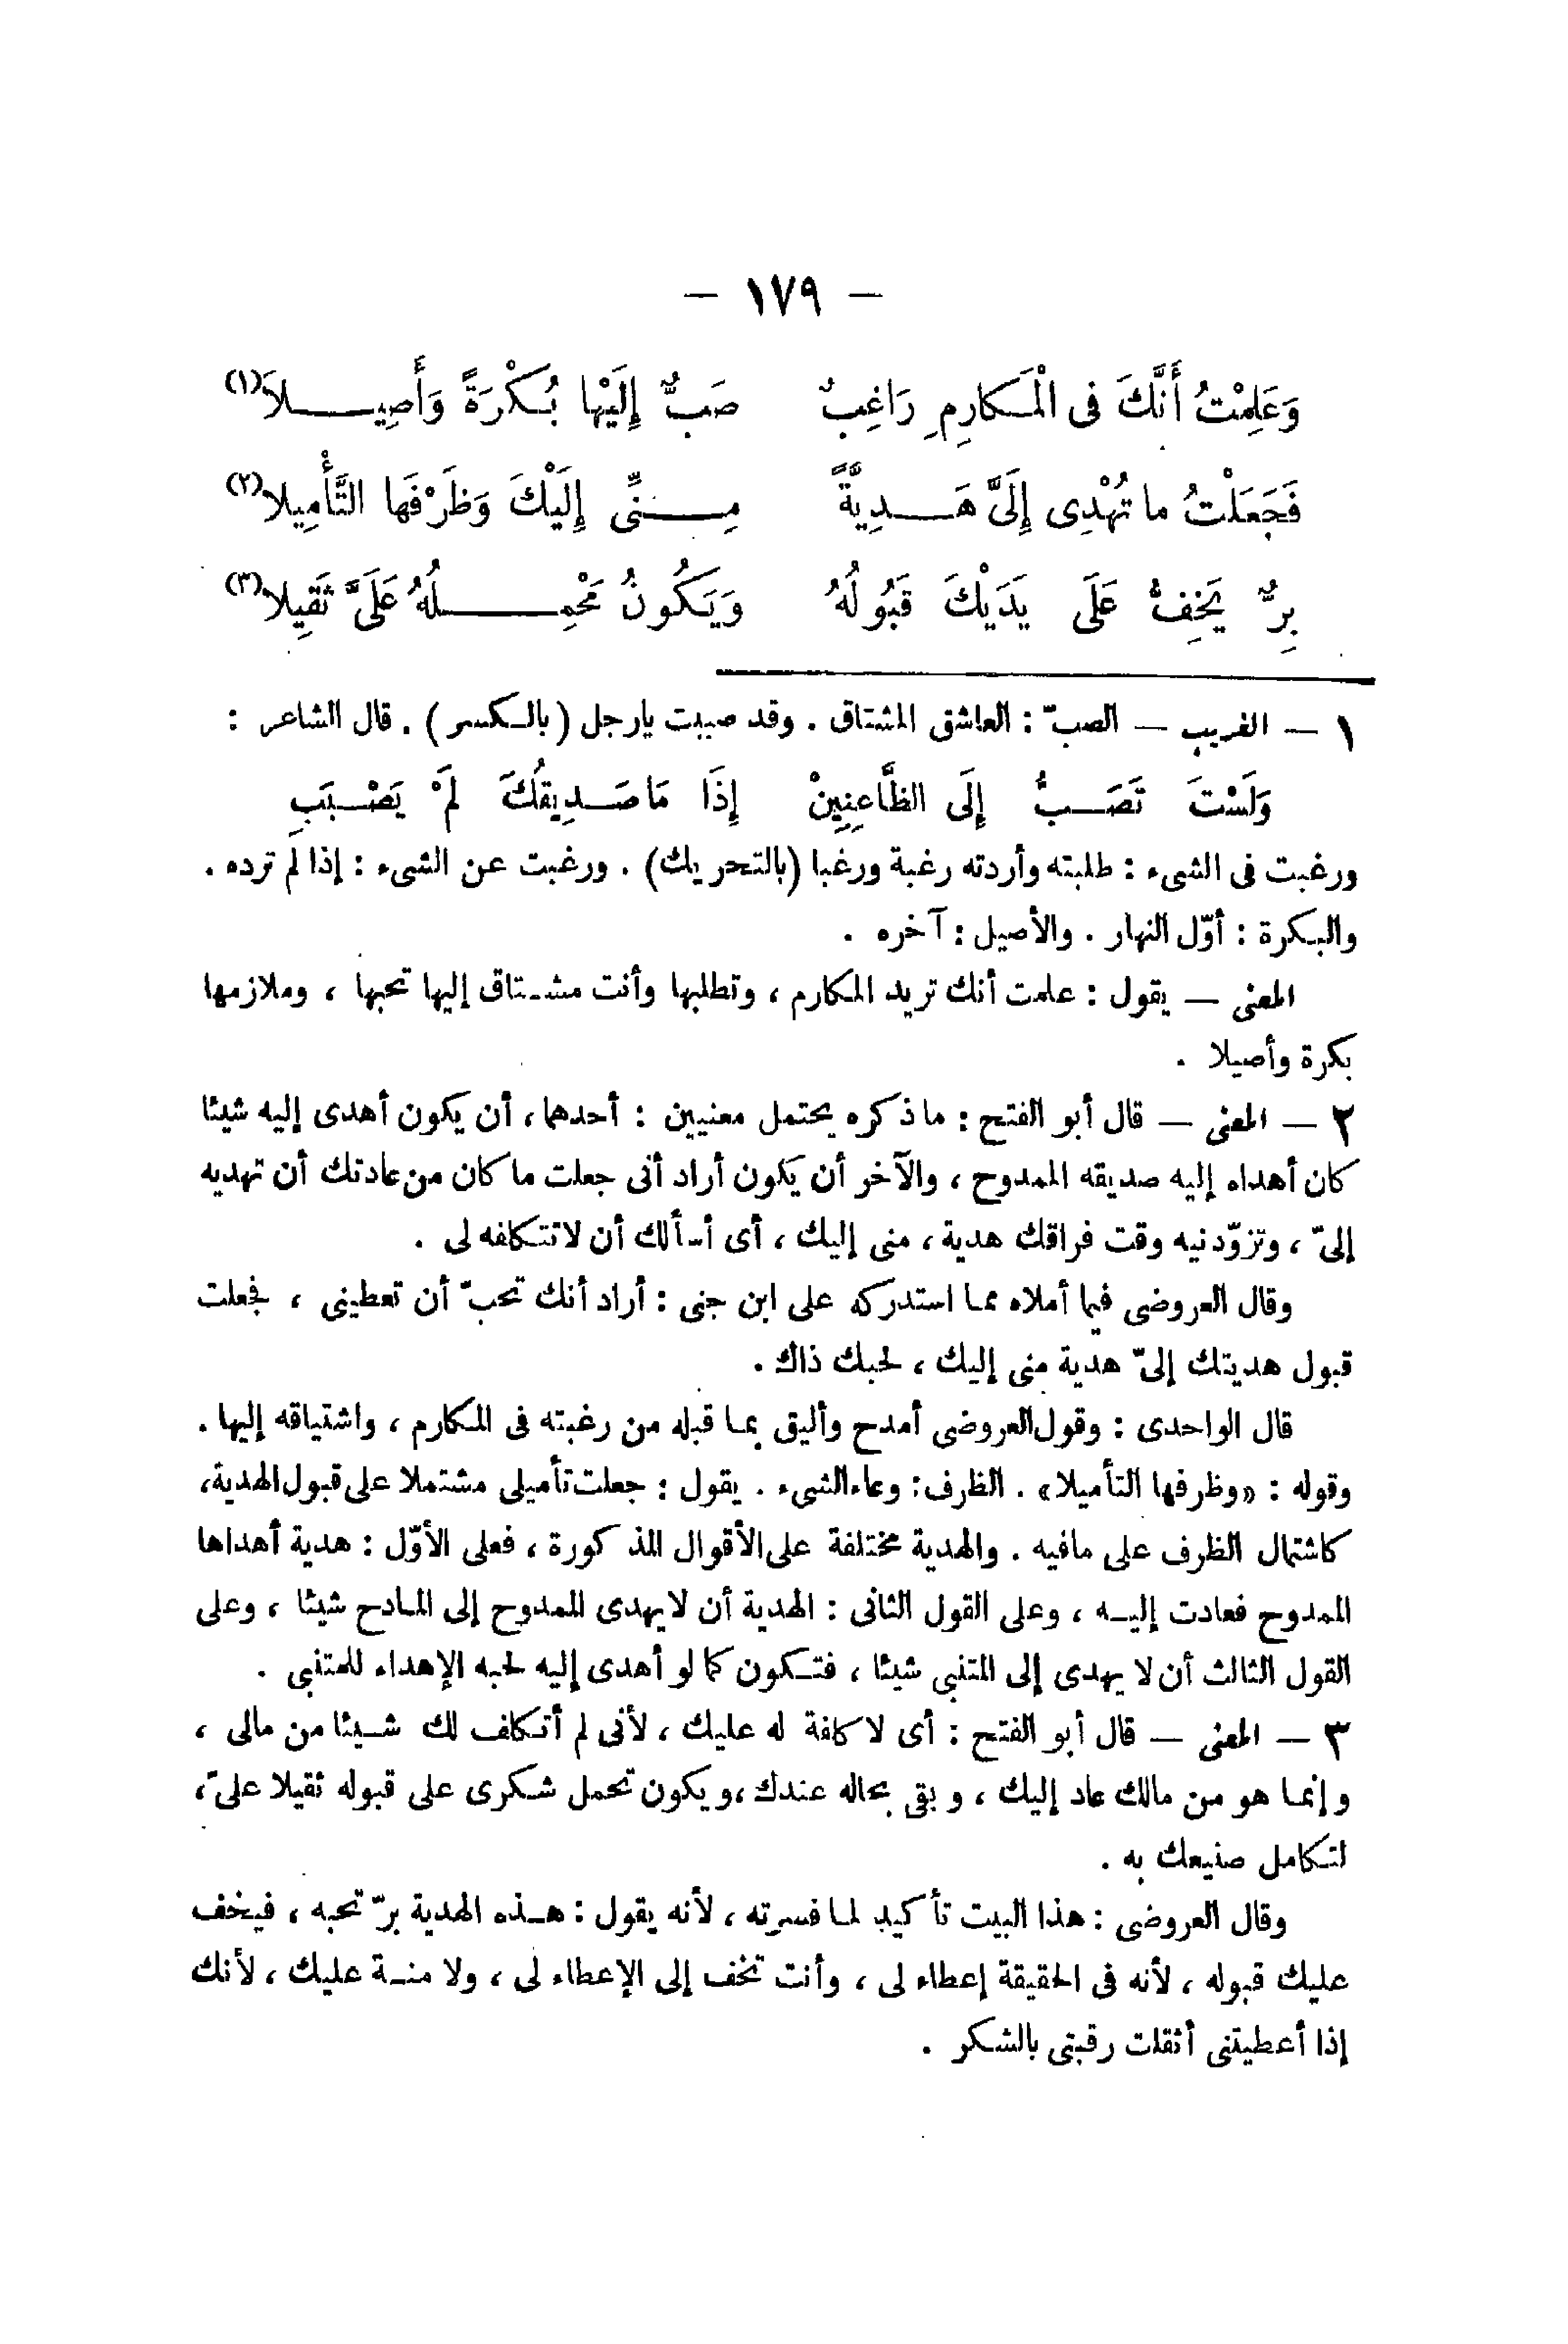 — ١٧٩ —
وَعَلِمْتُ أَنَّكَ فى الْمَكارِمِ رَاغِبٌ صَبٌّ إِلَيْها بُكْرَةً وَأَصِيلاَ(١)
فَجَعَلْتُ ما تُهْدِى إِلَىَّ هَدِيَّةً مِنِّى إِلَيْكَ وَظَرْفَها التَّأْمِيلا(٢)
بِرٌّ يَخِفُّ عَلَى يَدَيْكَ قَبُولُهُ وَيَكُونُ مَحْمِلُهُ عَلَىَّ ثَقِيلا(٣)
١ — الغريب — الصبّ : العاشق المشتاق . وقد صببت يارجل (بالكسر) . قال الشاعر :
وَلَسْتَ تَصَبُّ إِلَى الظَّاعِنِينْ إِذَا مَا صَدِيقُكَ لَمْ يَصْبَبِ
ورغبت فى الشىء : طلبته وأردته رغبة ورغبا (بالتحريك) . ورغبت عن الشىء : إذا لم ترده .
والبكرة : أوّل النهار . والأصيل : آخره .
المعنى — يقول : علمت أنك تريد المكارم ، وتطلبها وأنت مشتاق إليها تحبها ، وملازمها
بكرة وأصيلا .
٢ — المعنى — قال أبو الفتح : ما ذكره يحتمل معنيين : أحدهما ، أن يكون أهدى إليه شيئا
كان أهداه إليه صديقه الممدوح ، والآخر أن يكون أراد أنى جعلت ما كان من عادتك أن تهديه
إلىّ ، وتزوّدنيه وقت فراقك هدية ، منى إليك ، أى أسألك أن لا تتكلفه لى .
وقال العروضى فيما أملاه مما استدركه على ابن جنى : أراد أنك تحبّ أن تعطينى ، فجعلت
قبول هديتك إلىّ هدية منى إليك ، لحبك ذاك .
قال الواحدى : وقول العروضى أمدح وأليق بما قبله من رغبته فى المكارم ، واشتياقه إليها .
وقوله : «وظرفها التأميلا» . الظرف : وعاء الشىء . يقول : جعلت تأميلى مشتملا على قبول الهدية،
كاشتمال الظرف على مافيه . والهدية مختلفة على الأقوال المذكورة ، فعلى الأوّل : هدية أهداها
الممدوح فعادت إليه ، وعلى القول الثانى : الهدية أن لا يهدى الممدوح إلى المادح شيئا ، وعلى
القول الثالث أن لا يهدى إلى المتنبى شيئا ، فتكون كما لو أهدى إليه لحبه الإهداء للمتنبى .
٣ — المعنى — قال أبو الفتح : أى لا كلفة له عليك ، لأنى لم أتكلف لك شيئا من مالى ،
وإنما هو من مالك عاد إليك ، وبقى بحاله عندك ، ويكون تحمل شكرى على قبوله ثقيلا علىّ،
لتكامل صنيعك به .
وقال العروضى : هذا البيت تأكيد لما فسرته ، لأنه يقول : هذه الهدية برّ تحبه ، فيخف
عليك قبوله ، لأنه فى الحقيقة إعطاء لى ، وأنت تخف إلى الإعطاء لى ، ولا منة عليك ، لأنك
إذا أعطيتنى أثقلت رقبتى بالشكر .